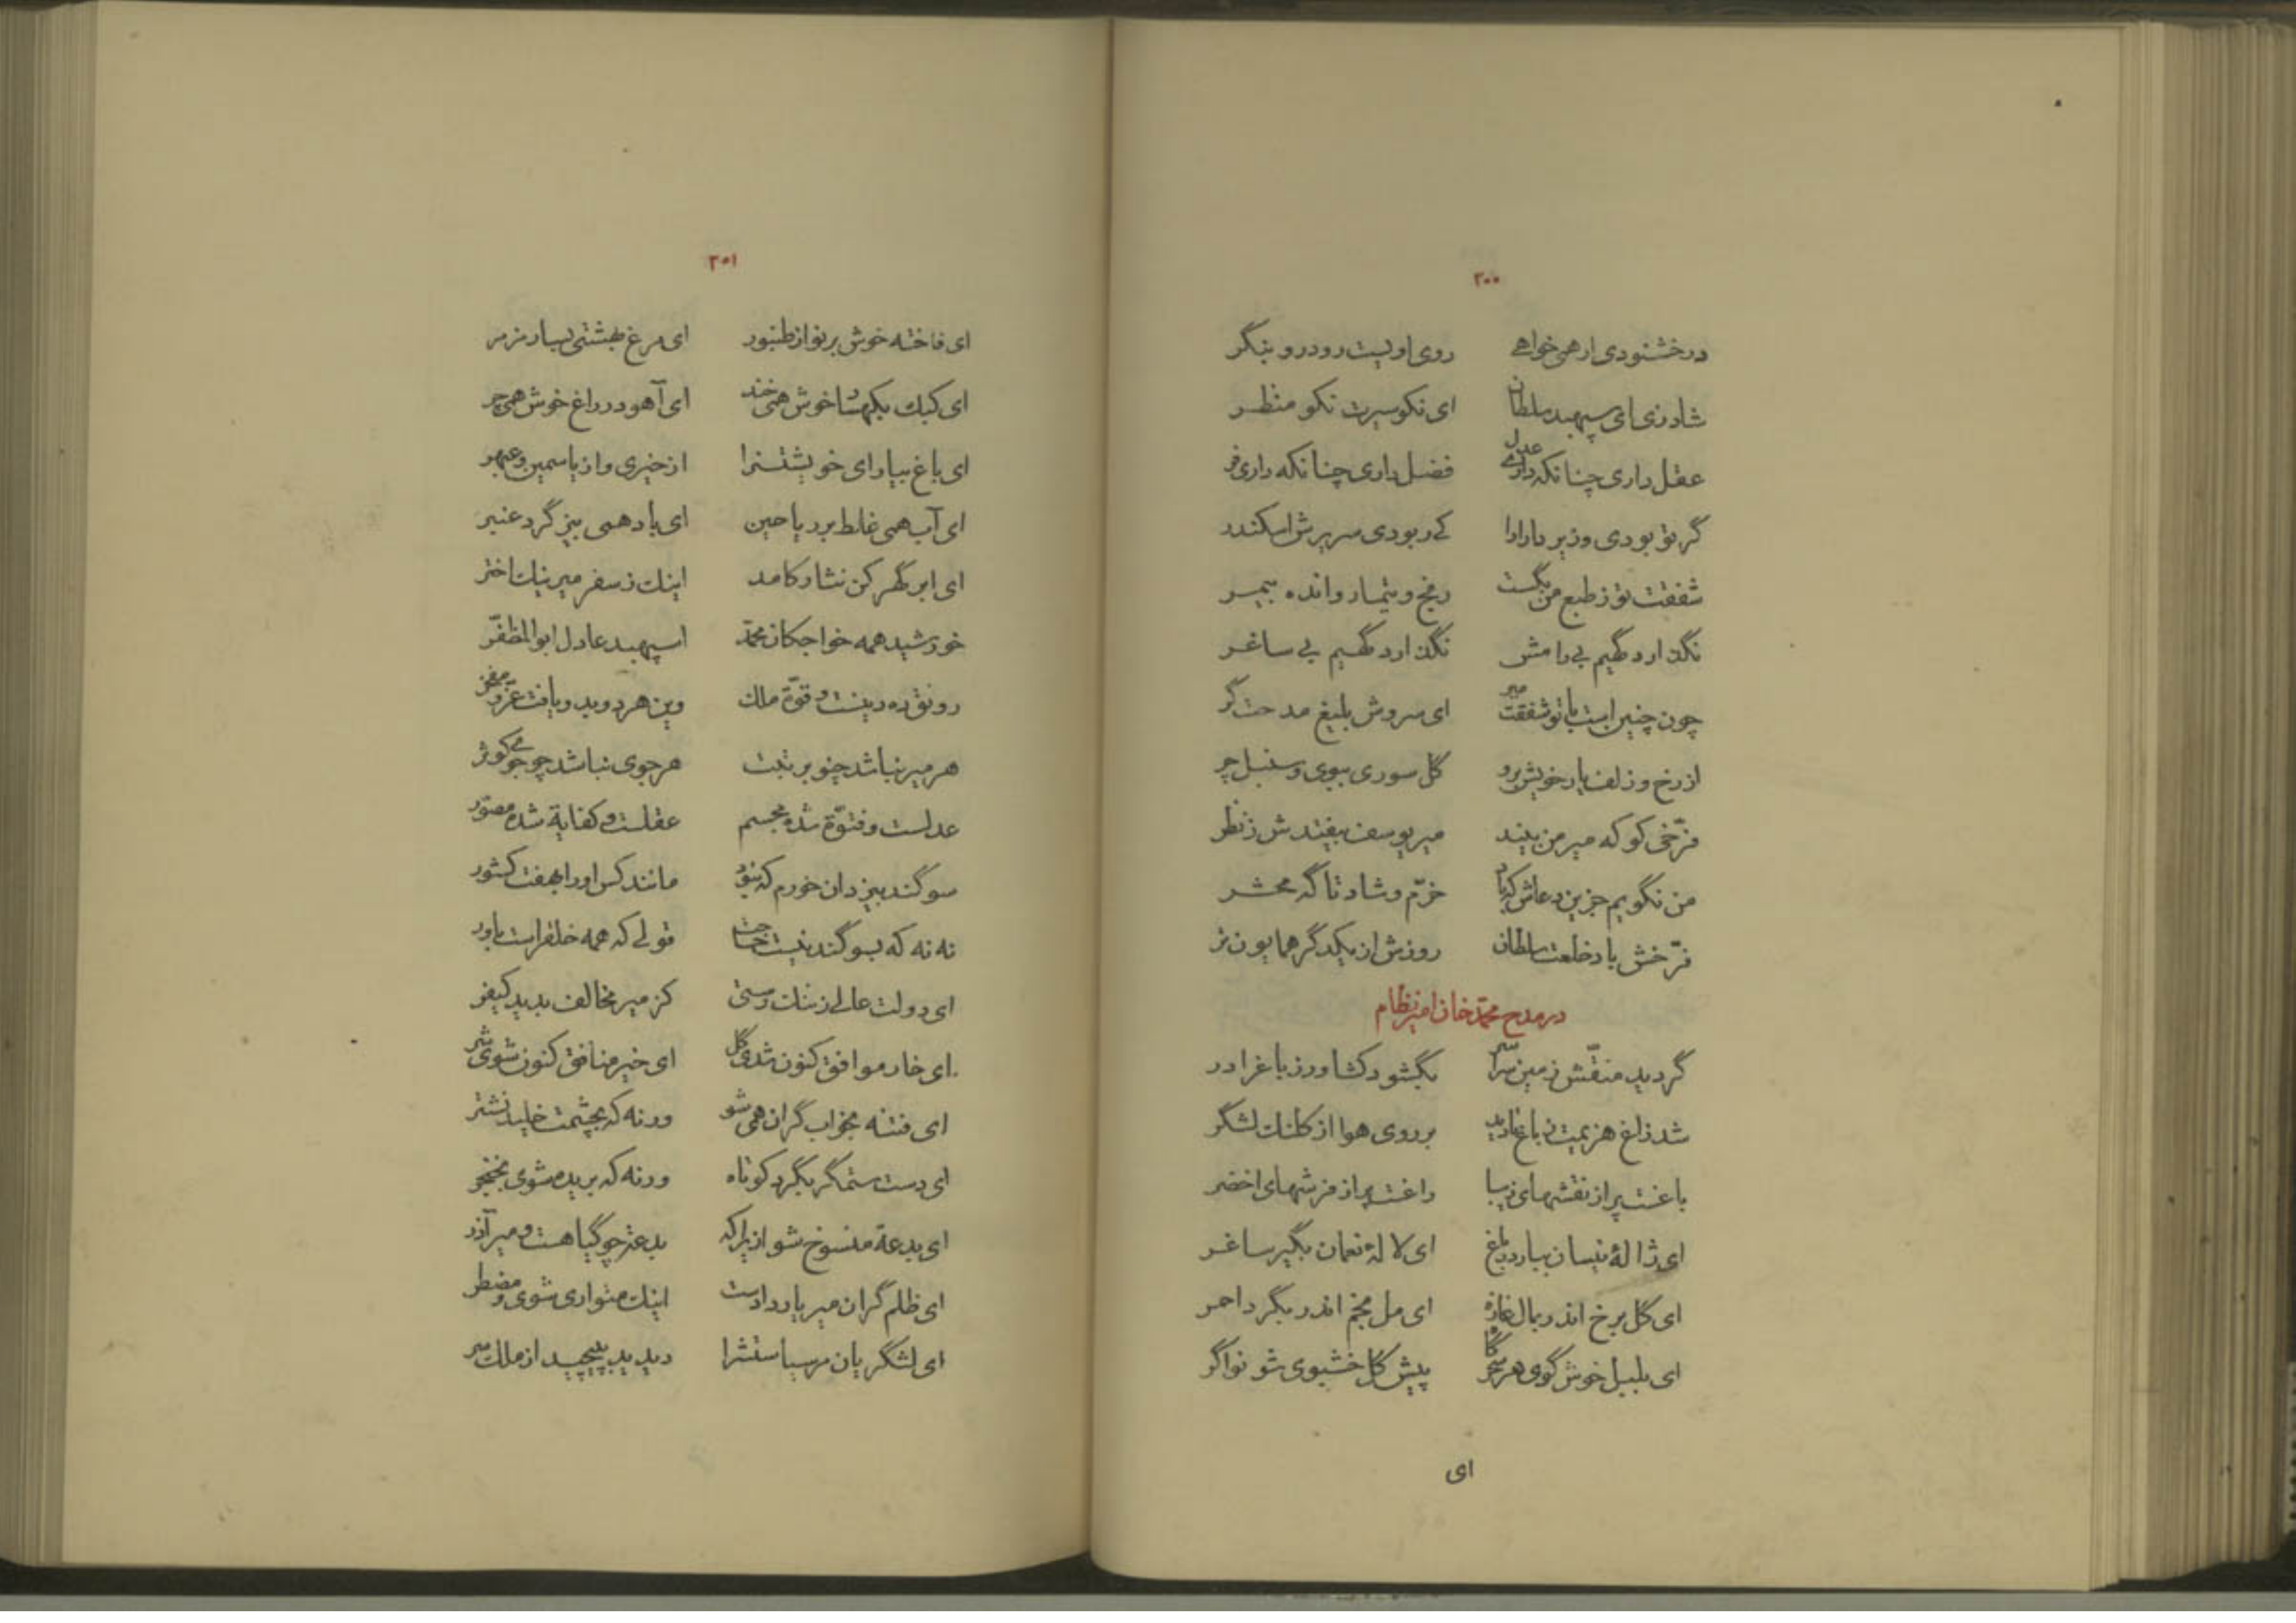 ۲۰۰
در خشنودی ار همی خواهے روی او لیست رو درو بنگر
شاد زی ای سپهبد سلطان ای نکو سیرت نکو منظر
عقل داری چنانکه داری عدل فضل داری چنانکه داری فر
گر تو بودی وزیر دارا را کے ربودی سریرش اسکندر
شفقت تو ز طبع من بگست رنج و تیمار و انده بیمر
نگذارد گهیم بی رامش نگذارد گهیم بی ساغر
چون چنین است با تو شفقت میر ای سروش بلیغ مدحت گر
از رخ و زلف یار خویش برو گل سوری ببوی و سنبل چر
فرّخی کو که میر من بیند میر یوسف بیفتدش ز نظر
من نگویم جزین دعاش که باد خرّم و شاد تا گه محشر
فرّخش باد خلعت سلطان روزش از یکدگر همایون تر
در مدح محمّد خان امیر نظام
گردید منقّش زمین سراسر بگشود کشاورز باغ را در
شد زاغ هزیمت ز باغ تا دید بر روی هوا از کلنك لشگر
باغست پر از نقشهای زیبا راغست پر از فرشهای اخضر
ای ژالهٔ نیسان ببار در باغ ای لالهٔ نعمان بگیر ساغر
ای گل برخ اندر بمال غازه ای مل بخم اندر بگرد احمر
ای بلبل خوش گوی هر سحرگاه پیش گل خشبوی شو نواگر
ای
۲۰۱
ای فاخته خوش بر نواز طنبور ای مرغ بهشتی بیار مزمر
ای کبك بکهسار خوش همی خند ای آهو در راغ خوش همی چر
ای باغ بیارای خویشتن را از خیری و از یاسمین و عبهر
ای آب همی غلط بر ریاحین ای باد همی بیز گرد عنبر
ای ابر گهر کن نثار کامد اینك ز سفر میر نیك اختر
خورشید همه خواجکان محمّد اسپهبد عادل ابوالمظفّر
رونق ده دینست و قوّة ملك وین هر دو بدو یافت عزّ و مفخر
هر میر نباشد چنو برتبت هر جوی نباشد چو جوی کوثر
عدلست و فتوّة شده مجسم عقلست و کفایة شده مصوّر
سوگند بیزدان خورم که نبود مانند کس او را بهفت کشور
نه نه که بسوگند نیست حاجت قولی که همه خلقراست باور
ای دولت عالی ز ننك رستی کز میر مخالف بدید کیفر
ای خار موافق کنون شدی گل ای خیر منافق کنون شوی شر
ای فتنه بخواب گران همی شو ورنه که بچشمت خلید نشتر
ای دست ستمگر بگرد کوتاه ورنه که بریده شوی بخنجر
ای بدعة منسوخ شو ازیراکه بدعة چو گیاهست و میر آذر
ای ظلم گران میر یار دادست اینك متواری شوی و مضطر
ای لشگریان مر سپاستش را دیدید بپیچید از ملك سر